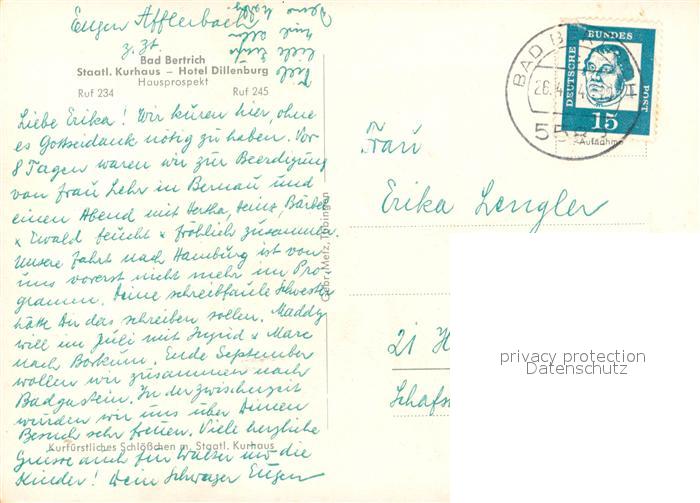 Eugen Afflerbach
z. Zt.
Bad Bertrich
Staatl. Kurhaus – Hotel Dillenburg
Hausprospekt
Ruf 234 Ruf 245
Liebe Erika! Wir kuren hier, ohne
es Gottseidank nötig zu haben. Vor
8 Tagen waren wir zur Beerdigung
von Frau Lehr in Bernau und
einen Abend mit Hertha, Heinz, Bärbel
x Ewald feucht x fröhlich zusammen.
Unsere Fahrt nach Hamburg ist von
uns vorerst nicht mehr im Pro-
gramm. Deine schreibfaule Schwester
hätte Dir das schreiben sollen. Maddy
will im Juli mit Ingrid x Marc
nach Borkum. Ende September
wollen wir zusammen nach
Badgastein. In der Zwischenzeit
würden wir uns über Deinen
Besuch sehr freuen. Viele herzliche
Grüsse auch für Walter und die
Kinder! Dein Schwager Eugen
Kurfürstliches Schlößchen m. Staatl. Kurhaus
Gebr. Metz, Tübingen
BAD
26.4
DEUTSCHE BUNDES POST
15
Aufnahme
Frau
Erika Lengler
21 H
Schafs
privacy protection
Datenschutz